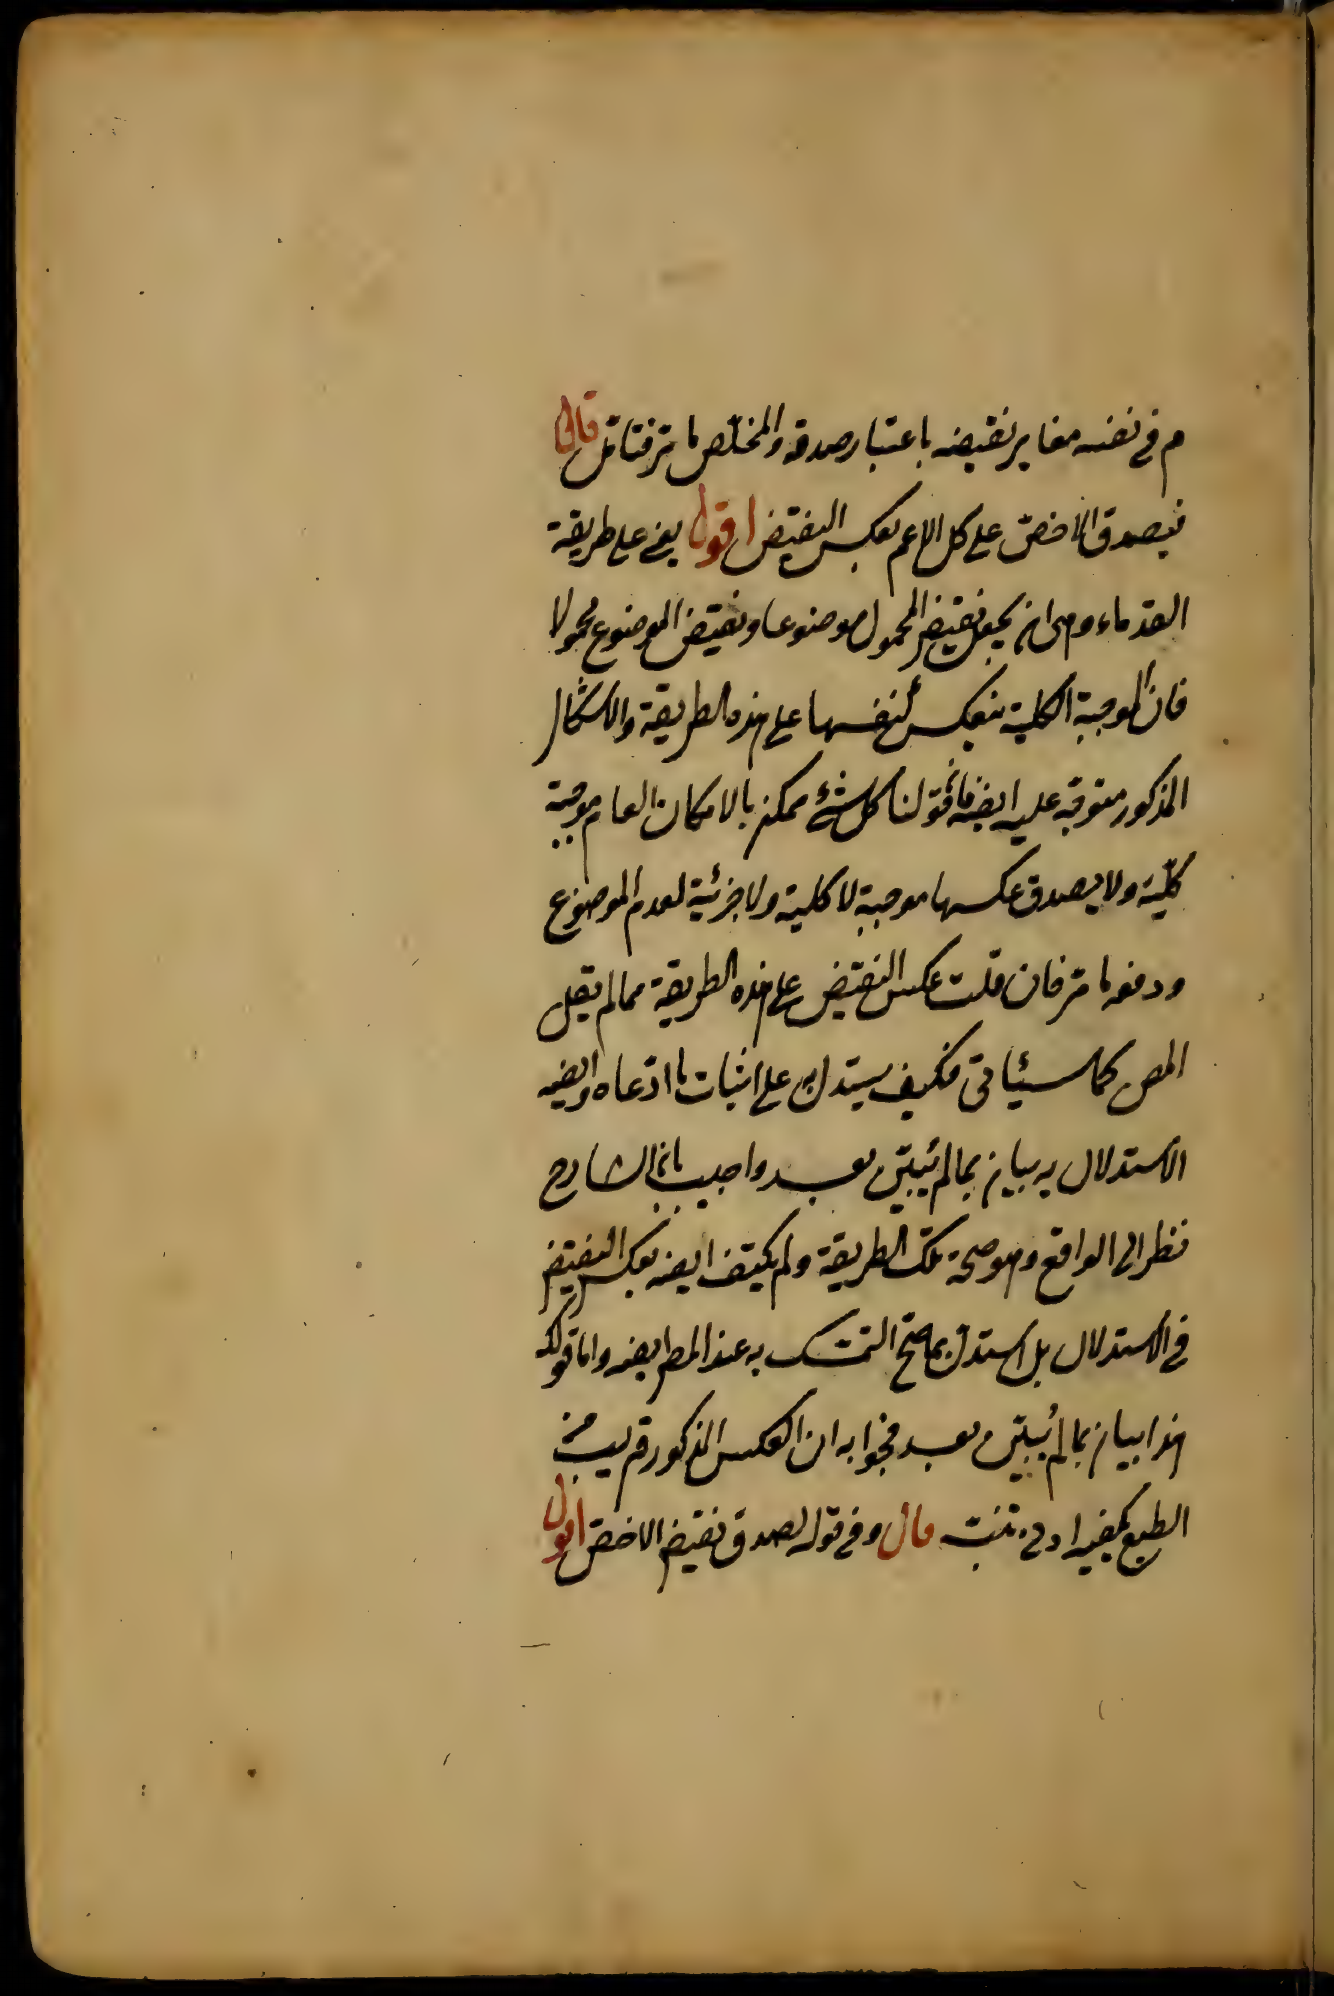 م في نفسه مغاير نقيضه باعتبار صدقه والمخلّص ما مرّ فتامّل قال
فيصدق الاخصّ على كل الاعم بعكس النقيض اقول يعني على طريقة
القدماء وهي ان يجعل نقيض المحمول موضوعا ونقيض الموضوع محمولا
فان الموجبة الكلية ينعكس كنفسها على هذه الطريقة والاشكال
المذكور متوجّه عليه ايضه فان قولنا كل شئ ممكن بالامكان العام موجبة
كلّية ولا يصدق عكسها موجبة لا كلية ولا جزئية لعدم الموضوع
ودفعه ما مرّ فان قلت عكس النقيض على هذه الطريقة مما لم يقل
المص كما سيأتى فكيف يستدل به على اثبات ما ادّعاه وايضه
الاستدلال به بيان بما لم يُبيّن بعد واجيب بانّ الشارح
نظر الى الواقع وهو صحة تلك الطريقة ولم يكتف ايضه بعكس النقيض
في الاستدلال بل استدلّ بما صحّ التمسّك به عند المص ايضه واما قولك
هذا بيان بما لم يُبيّن بعد فجوابه ان العكس المذكور قريب من
الطبع يكفيه ادنى تنبّه قال وفي قوله لصدق نقيض الاخصّ اقول